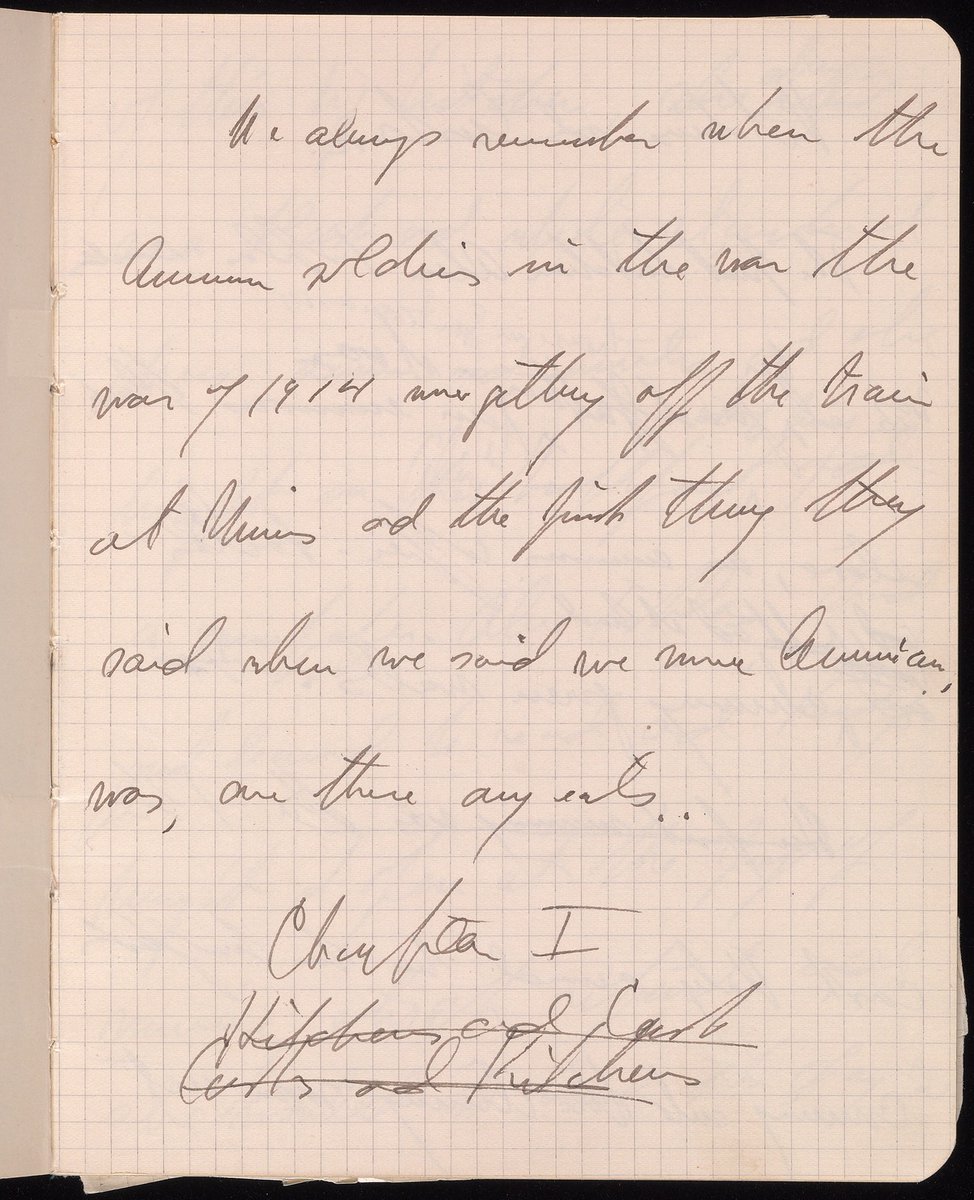 We always remember when the
American soldiers in the war the
war of 1914 were getting off the train
at Nimes and the first thing they
said when we said we were American,
was, are there any eats..
Chapter I
Kitchens and Cooks
and Kitchens